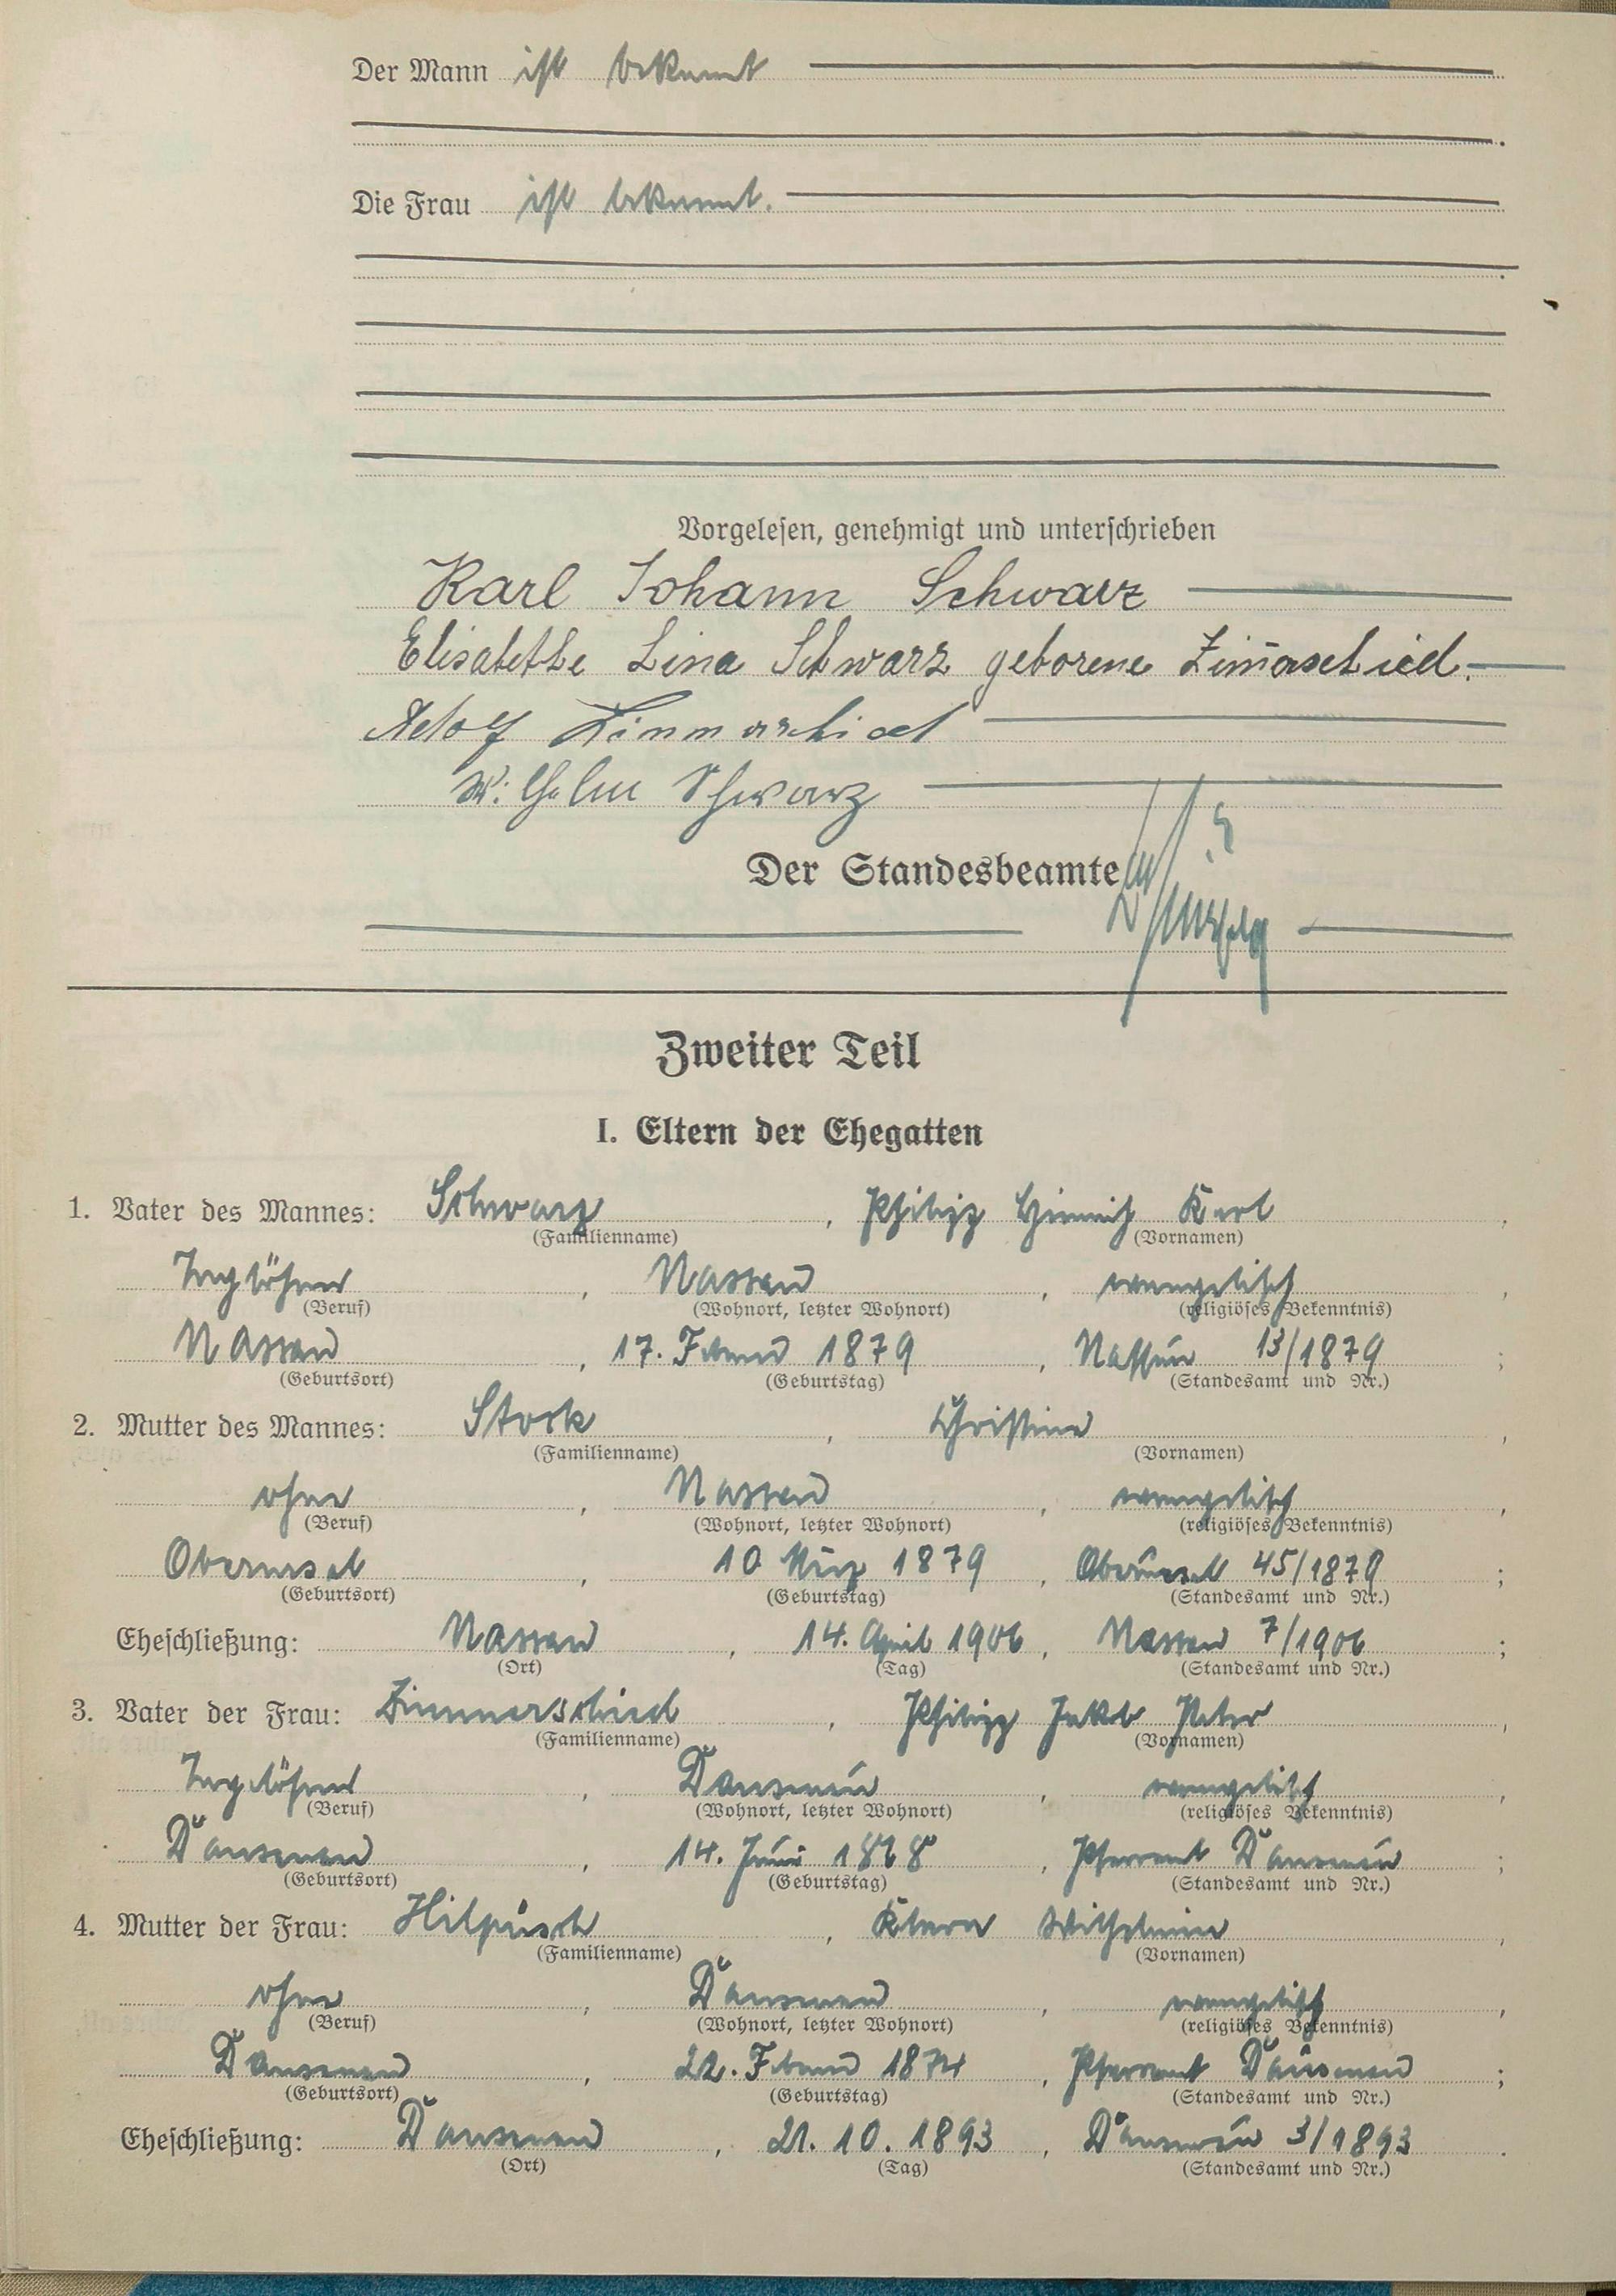 Der Mann ist bekannt
Die Frau ist bekannt.
Vorgelesen, genehmigt und unterschrieben
Karl Johann Schwarz
Elisabethe Lina Schwarz geborene Zim̄erschied.
Adolf Zimmerschied
Wilhelm Schwarz
Der Standesbeamte
Zweiter Teil
I. Eltern der Ehegatten
1. Vater des Mannes: Schwarz, Philipp Heinrich Karl,
(Familienname) (Vornamen)
Taglöhner, Nassau, evangelisch,
(Beruf) (Wohnort, letzter Wohnort) (religiöses Bekenntnis)
Nassau, 17. Februar 1879, Nassau 13/1879;
(Geburtsort) (Geburtstag) (Standesamt und Nr.)
2. Mutter des Mannes: Stork, Christine,
(Familienname) (Vornamen)
ohne, Nassau, evangelisch,
(Beruf) (Wohnort, letzter Wohnort) (religiöses Bekenntnis)
Oberursel, 10 März 1879, Oberursel 45/1879;
(Geburtsort) (Geburtstag) (Standesamt und Nr.)
Eheschließung: Nassau, 14. April 1906, Nassau 7/1906;
(Ort) (Tag) (Standesamt und Nr.)
3. Vater der Frau: Zimmerschied, Philipp Jakob Peter,
(Familienname) (Vornamen)
Taglöhner, Dausenau, evangelisch,
(Beruf) (Wohnort, letzter Wohnort) (religiöses Bekenntnis)
Dausenau, 14. Juni 1868, Pfarramt Dausenau;
(Geburtsort) (Geburtstag) (Standesamt und Nr.)
4. Mutter der Frau: Hilpüsch, Klara Wilhelmine,
(Familienname) (Vornamen)
ohne, Dausenau, evangelisch,
(Beruf) (Wohnort, letzter Wohnort) (religiöses Bekenntnis)
Dausenau, 22. Februar 1874, Pfarramt Dausenau;
(Geburtsort) (Geburtstag) (Standesamt und Nr.)
Eheschließung: Dausenau, 21. 10. 1893, Dausenau 3/1893.
(Ort) (Tag) (Standesamt und Nr.)